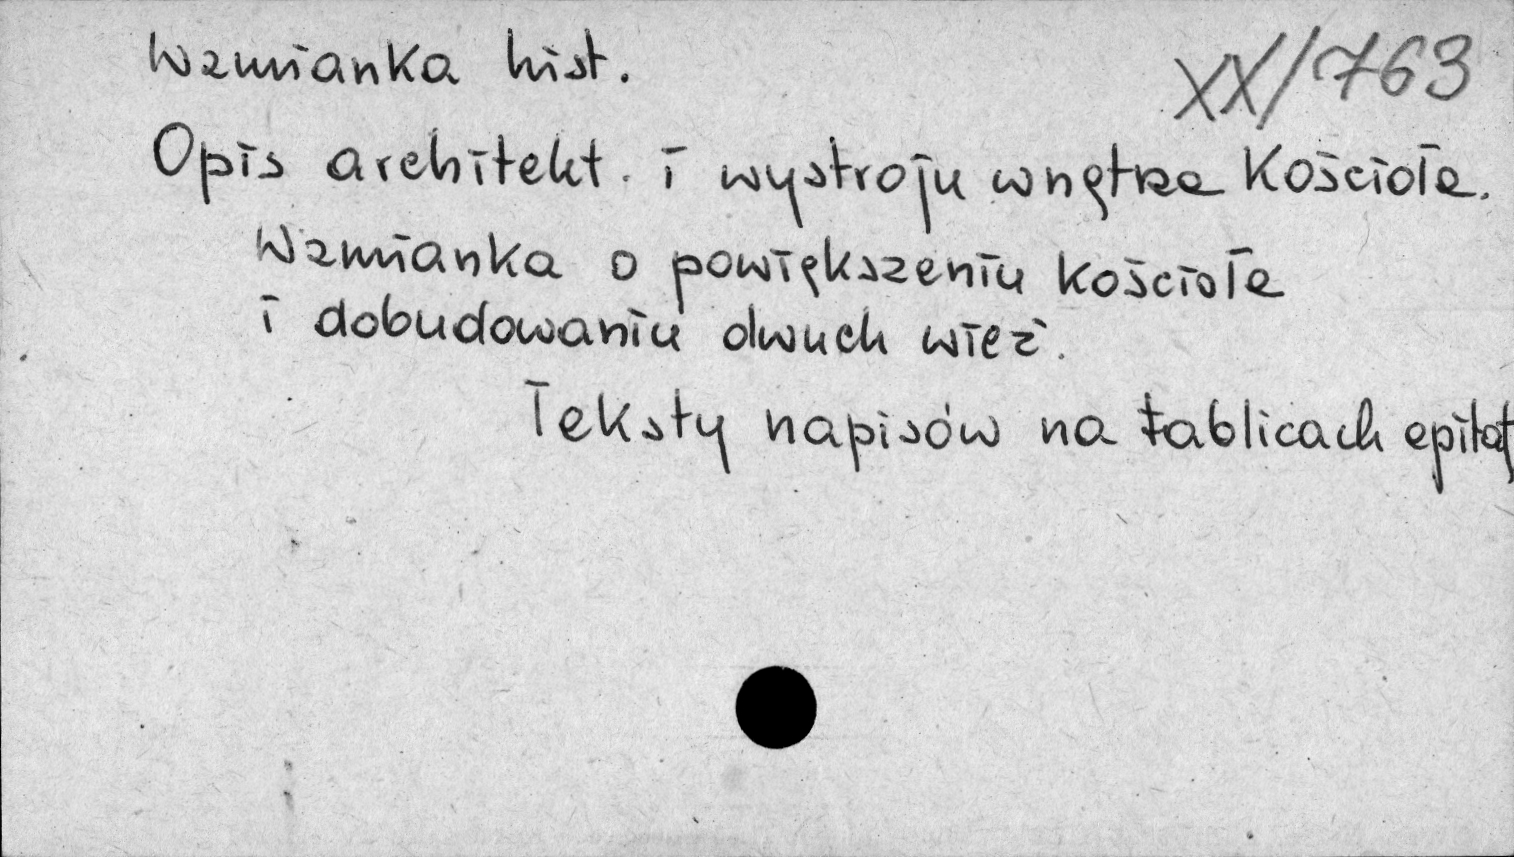 XX/763
Wzmianka hist.
Opis architekt. i wystroju wnętrza Kościoła.
Wzmianka o powiększeniu kościoła
i dobudowaniu dwuch wież.
Teksty napisów na tablicach epitaf